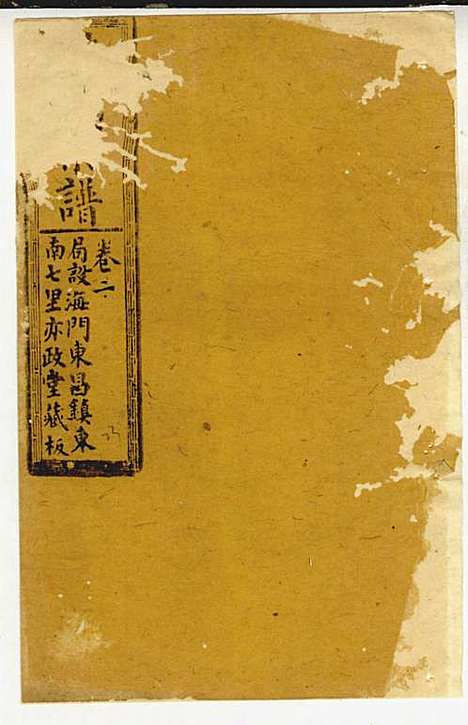 譜
卷二
局設海門東昌鎮東
南七里亦政堂藏板